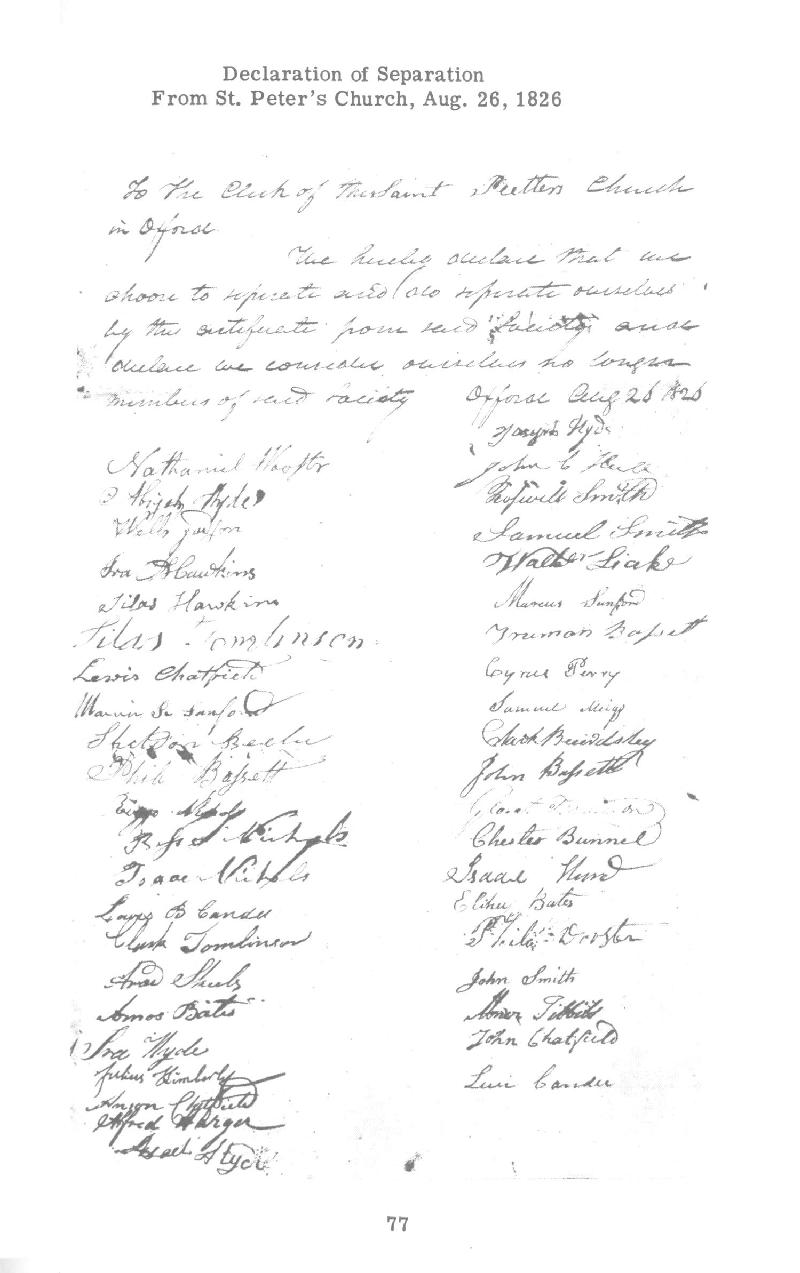 Declaration of Separation
From St. Peter's Church, Aug. 26, 1826
To the Clerk of the Saint Peetters Church
in Oxford
We hereby declare that we
choose to seperate and do seperate ourselves
by this certificate from said Society and
declare we consider ourselves no longer
members of said Society
Oxford Aug 26 1826
Nathaniel Wooster
Abijah Hyde
Ira Hawkins
Silas Hawkins
Silas Tomlinson
Lewis Chatfield
Sanford
Sheldon Beebe
Bassett
Nichols
Isaac Nichols
B Candee
Clark Tomlinson
Amos Bates
Ira Hyde
Julius Kimberly
Anson Chatfield
Alfred Harger
Hyde
Joseph Hyde
John C Hull
Roswell Smith
Samuel Smith
Walter
Marcus Sanford
Truman Bassett
Cyrus Perry
Samuel Meigs
Clark Beardsley
John Bassett
Chester Bunnel
Isaac Hurd
Elihu Bates
Philo Wooster
John Smith
Abner Tibbits
John Chatfield
Levi Candee
77